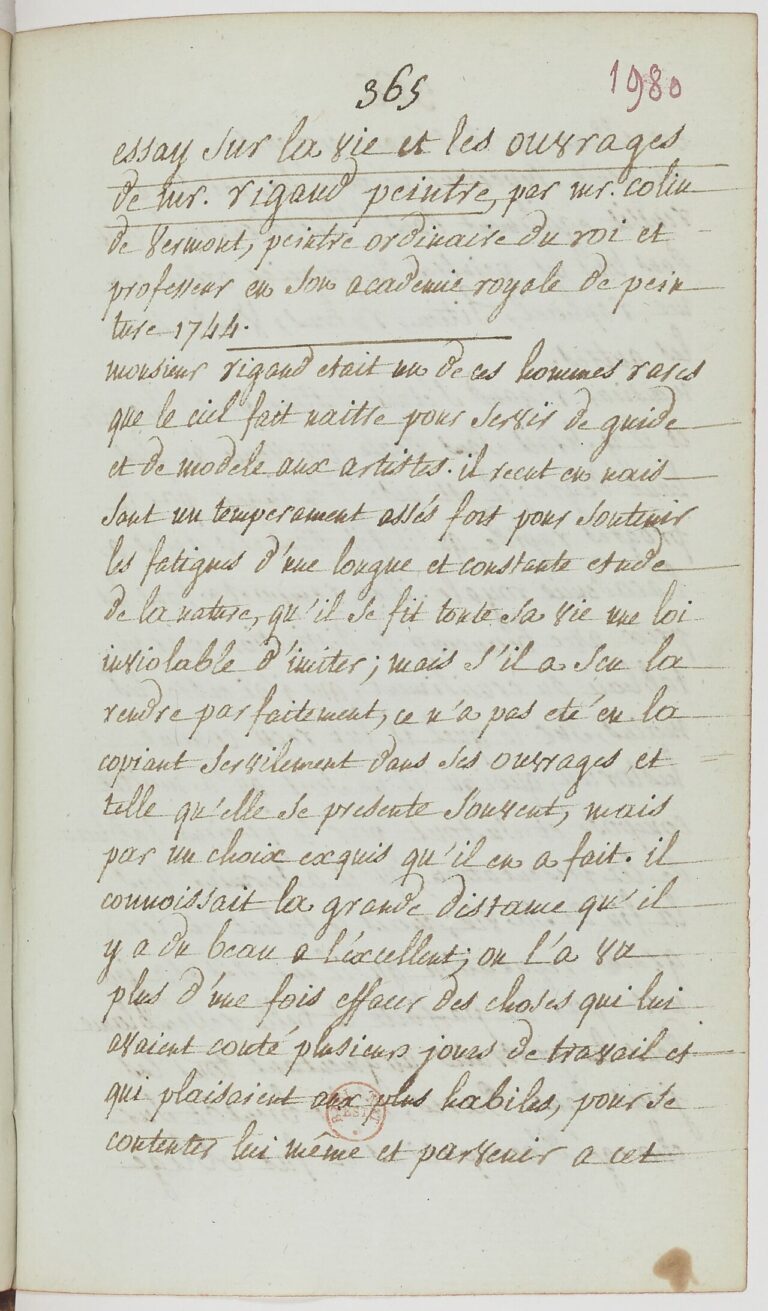 365
1980
essay sur la vie et les ouvrages
de mr. rigaud peintre, par mr. colin
de vermont, peintre ordinaire du roi et
professeur en son academie royale de pein
ture 1744.
monsieur rigaud etait un de ces hommes rares
que le ciel fait naitre pour servir de guide
et de modele aux artistes. il recut en nais
sant un temperament assés fort pour soutenir
les fatigues d'une longue et constante etude
de la nature, qu'il se fit toute sa vie une loi
inviolable d'imiter; mais s'il a seu la
rendre parfaitement, ce n'a pas eté en la
copiant servilement dans ses ouvrages, et
telle qu'elle se presente souvent, mais
par un choix exquis qu'il en a fait. il
connoissait la grande distance qu'il
y a du beau a l'excellent; on l'a vu
plus d'une fois effacer des choses qui lui
avaient couté plusieurs jours de travail et
qui plaisaient aux plus habiles, pour se
contenter lui même et parvenir a cet